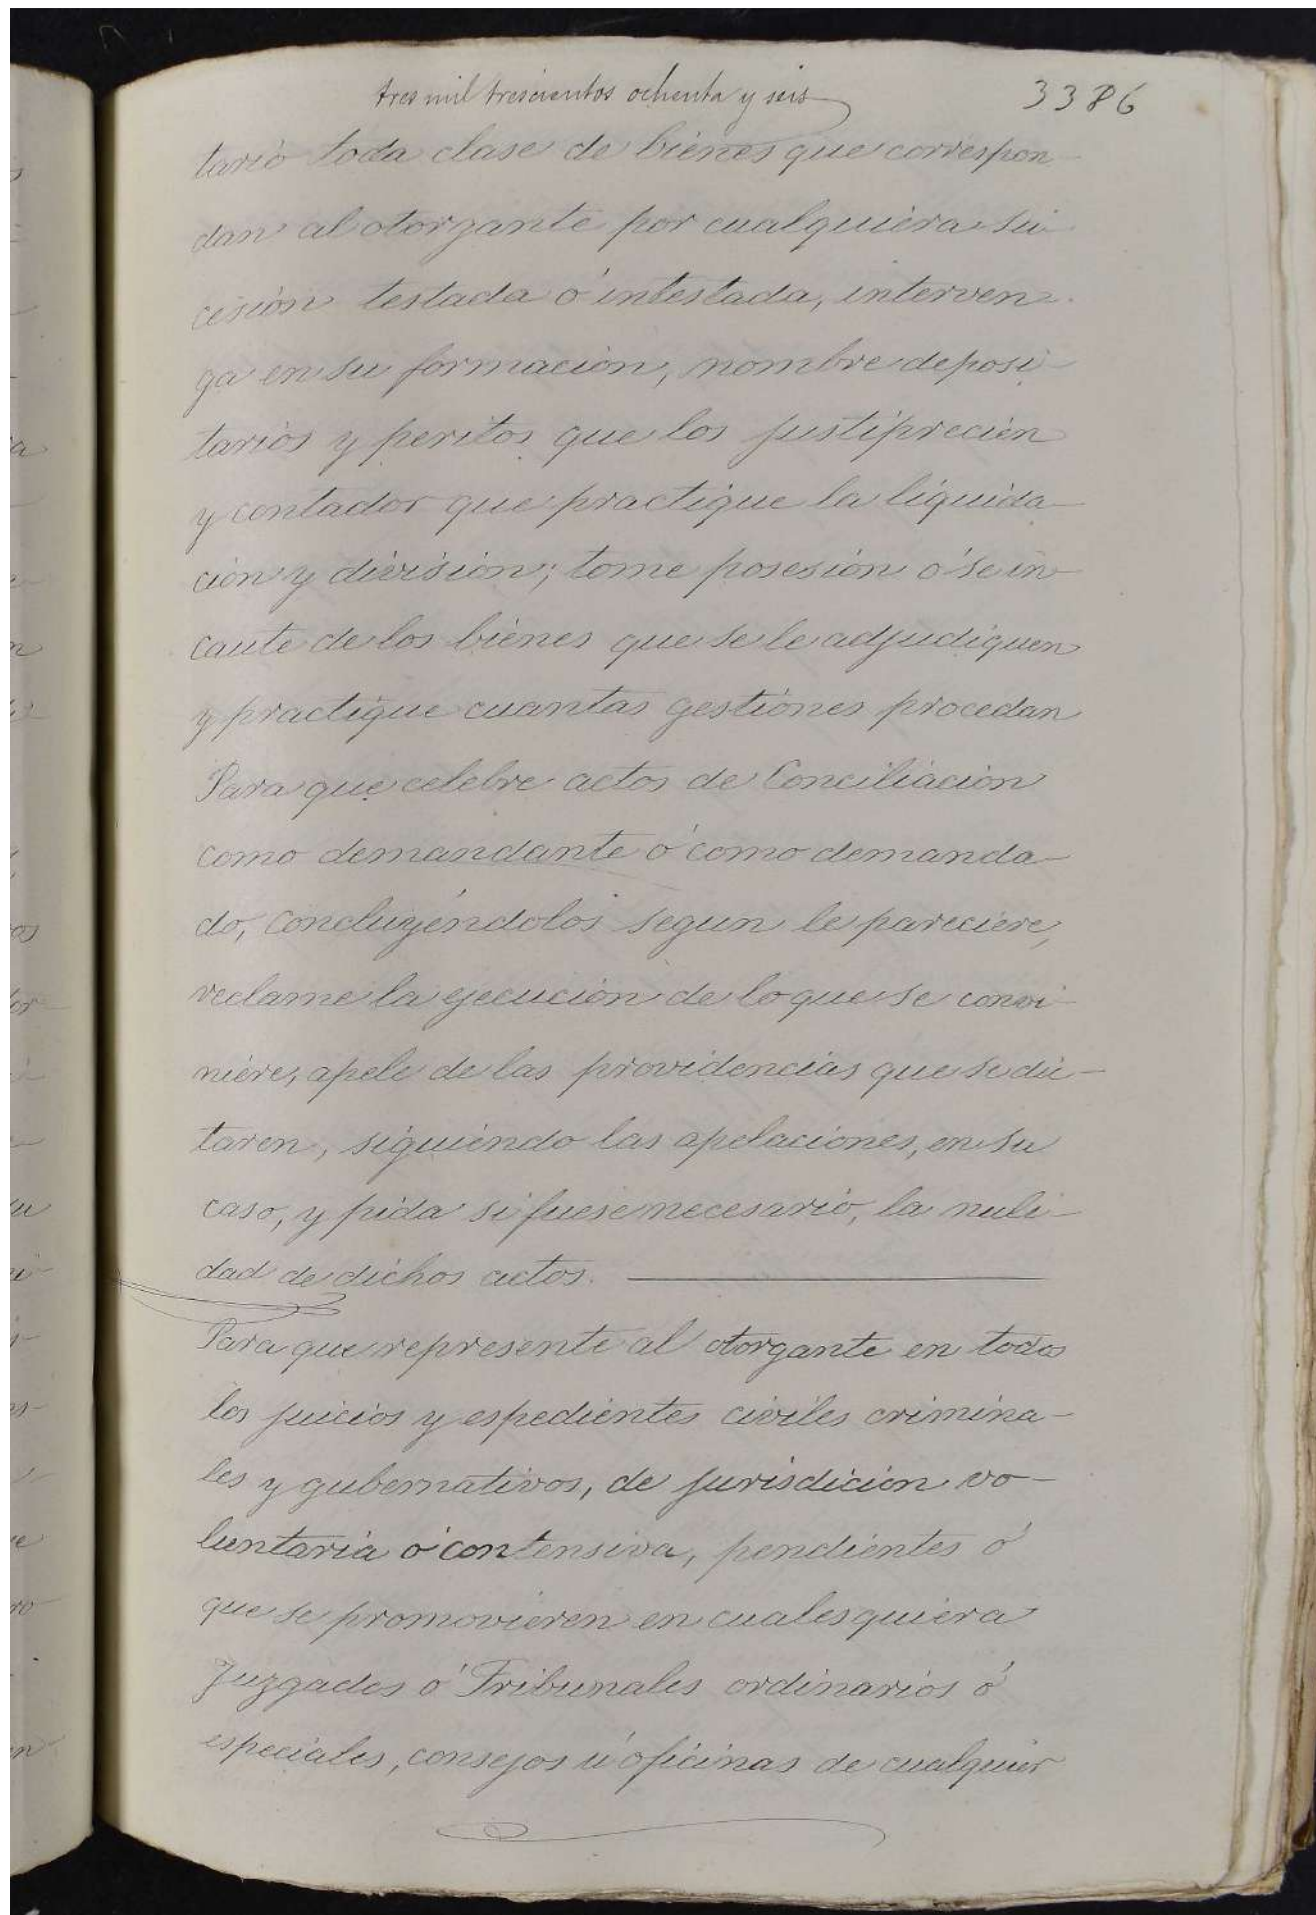 tres mil trescientos ochenta y seis 3386
tario toda clase de bienes que correspon-
dan al otorgante por cualquiera su-
cesión testada ó intestada, interven-
ga en su formación, nombre deposi-
tarios y peritos que los justiprecien
y contador que practique la liquida-
ción y división; tome posesión ó se in-
caute de los bienes que se le adjudiquen
y practique cuantas gestiones procedan
Para que celebre actos de Conciliación
como demandante ó como demanda-
do, concluyéndolos segun le pareciere,
reclame la ejecución de lo que se convi-
niere, apele de las providencias que se dic-
taren, siguiendo las apelaciones, en su
caso, y pida si fuese necesario, la nuli-
dad de dichos actos.
Para que represente al otorgante en todos
los juicios y espedientes civiles crimina-
les y gubernativos, de jurisdicion vo-
luntaria ó contensiva, pendientes ó
que se promovieren en cualesquiera
Juzgados ó Tribunales ordinarios ó
especiales, consejos ú oficinas de cualquier